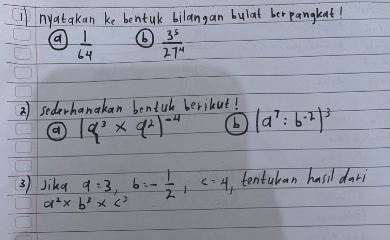 1) nyatakan ke bentuk bilangan bulat berpangkat!
(a) 1/64 (b) 3⁵/27⁴
2) Sederhanakan bentuk berikut!
(a) (a³ × a²)⁻⁴ (b) (a⁷ : b⁻²)³
3) Jika a = 3, b = -1/2, c = 4, tentukan hasil dari
a² × b³ × c³